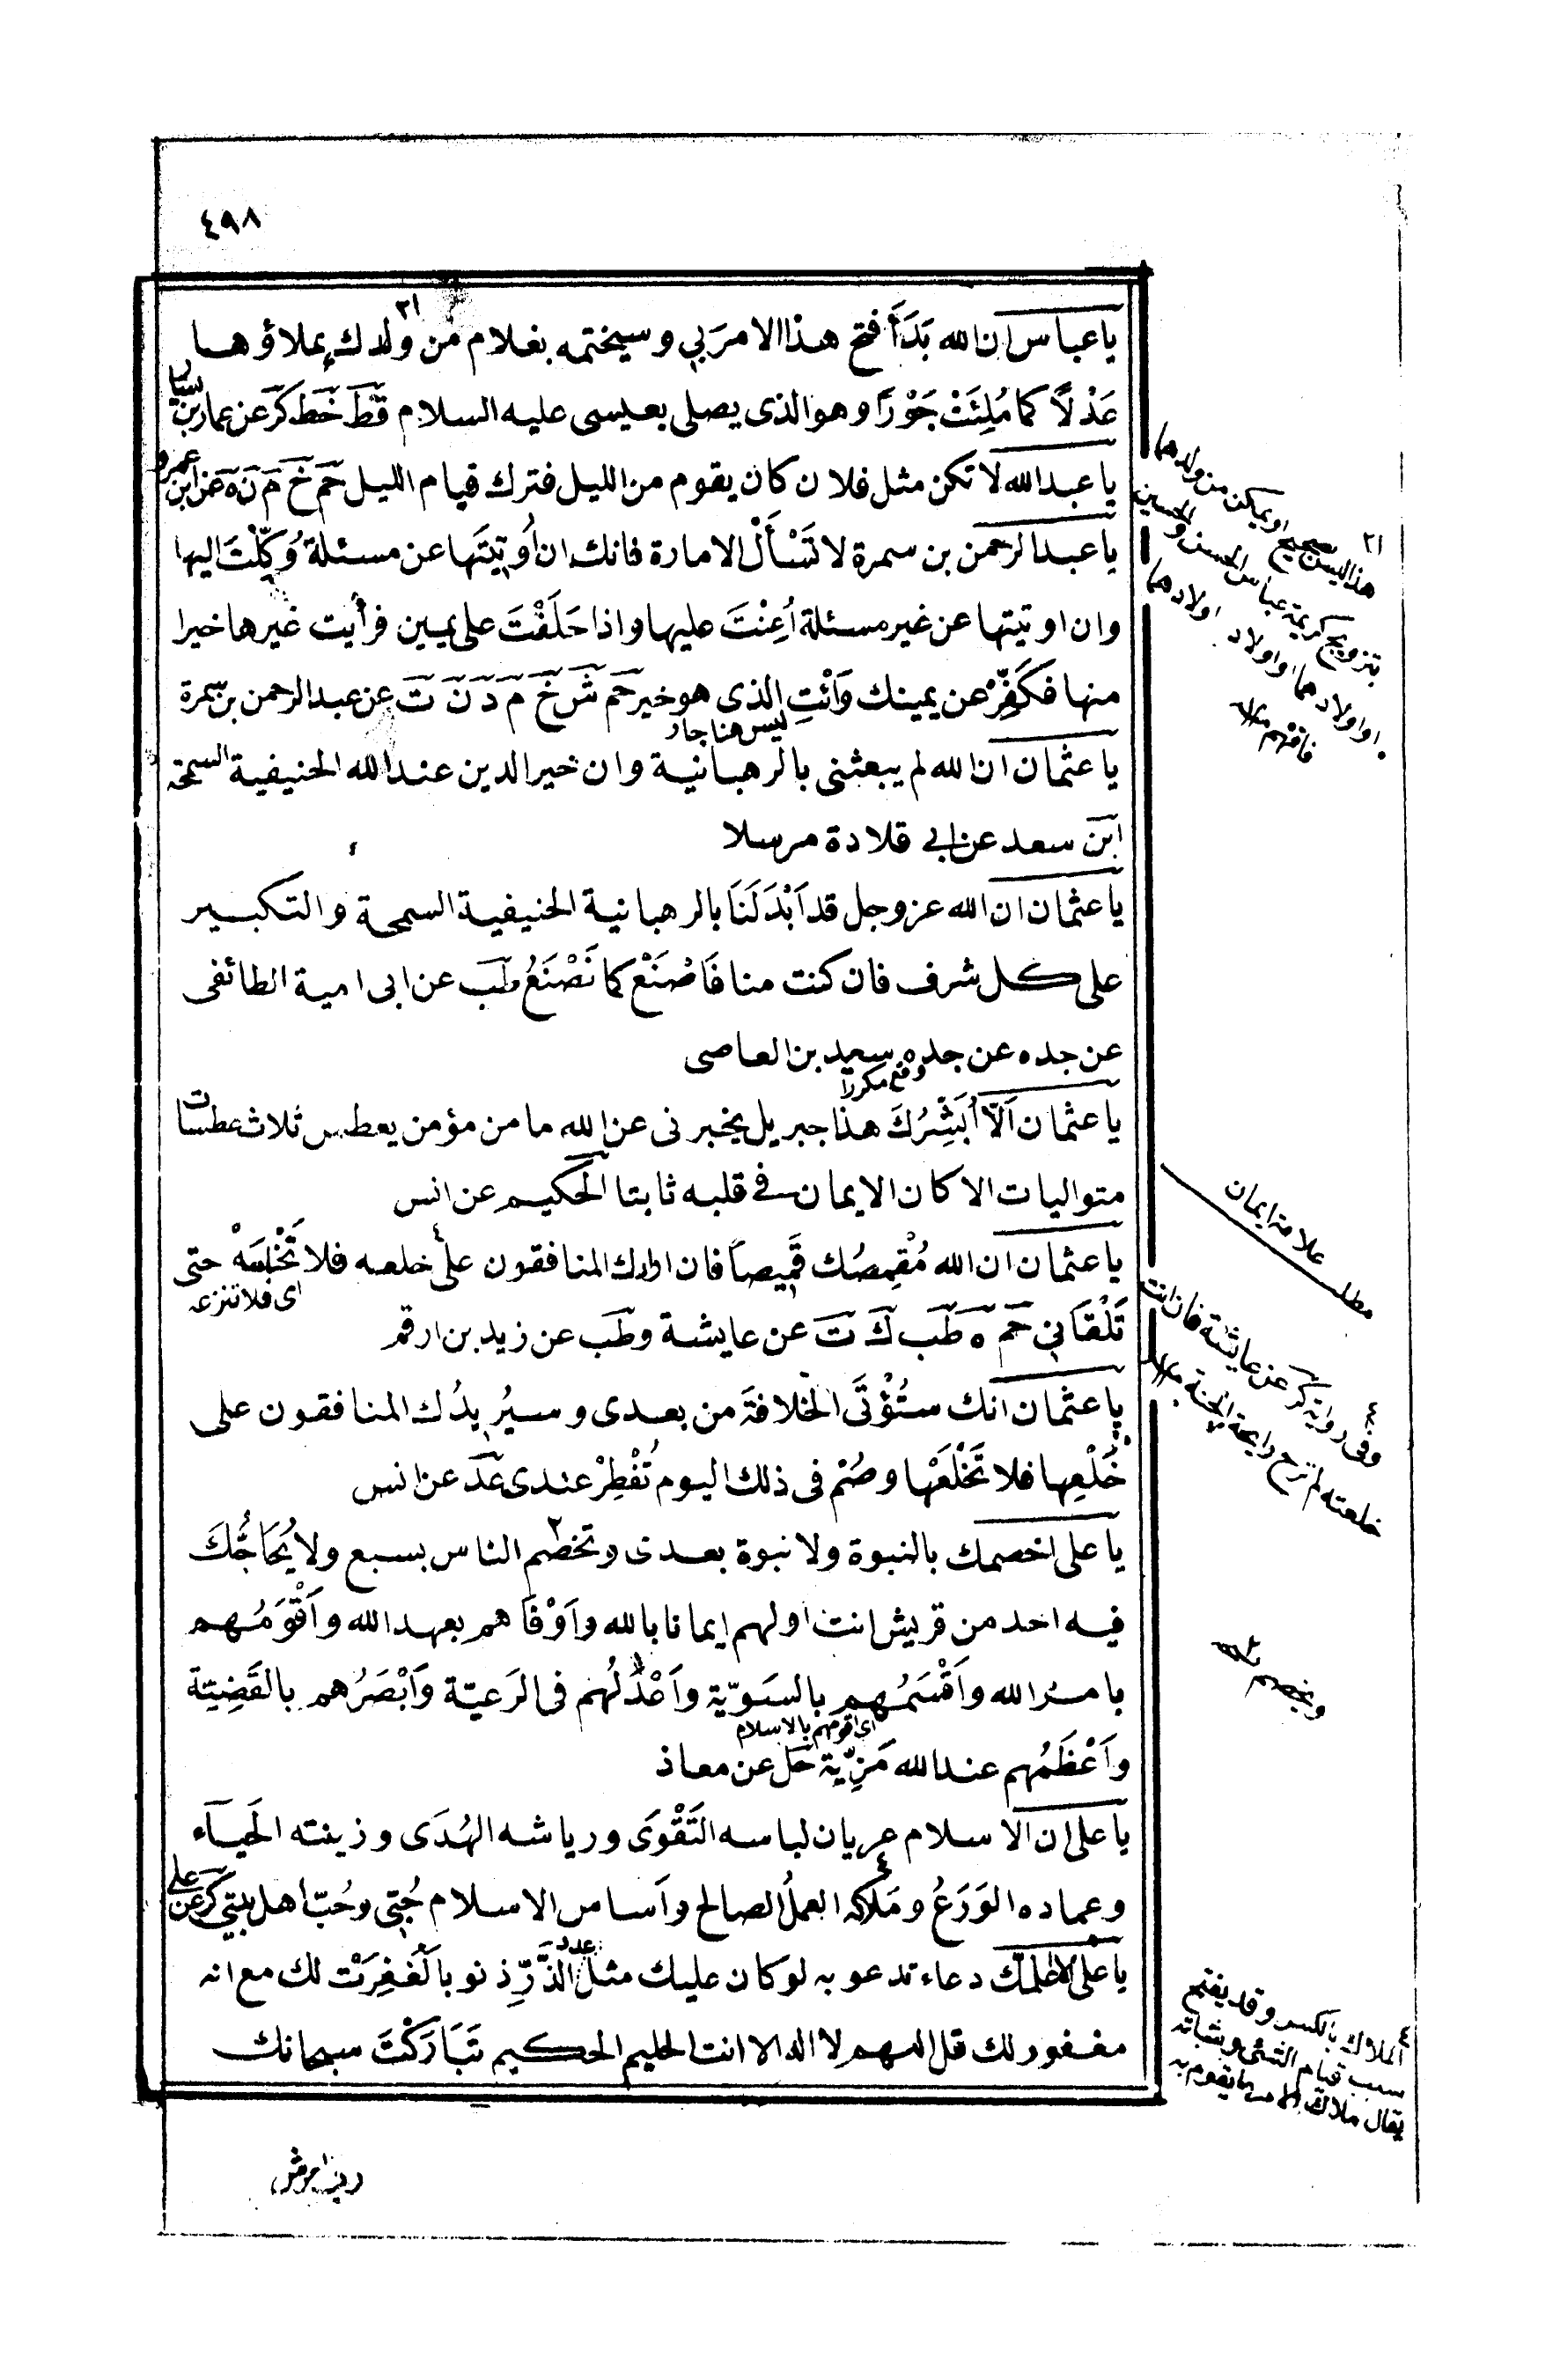 ٤٩٨
يا عباس ان الله بَدَأَ فتح هذا الامر بي وسيختمه بغلام من ولدك يملاؤها
عَدْلًا كما مُلِئَتْ جَوْرًا وهو الذى يصلى بعيسى عليه السلام قط خط كر عن عمار بن ياسر
يا عبد الله لا تكن مثل فلان كان يقوم من الليل فترك قيام الليل حم خ م ن ه عن ابن عمرو
يا عبد الرحمن بن سمرة لا تَسْأَلْ الامارة فانك ان أُوتيتَها عن مسئلة وُكِّلْتَ اليها
وان اوتيتها عن غير مسئلة اُعِنْتَ عليها واذا حَلَفْتَ على يمين فرأيت غيرها خيرا
منها فَكَفِّرْ عن يمينك وَأْتِ الذى هو خير حم ش خ م د ن ت عن عبد الرحمن بن سمرة
ليس هنا جار
يا عثمان ان الله لم يبعثنى بالرهبانية وان خير الدين عند الله الحنيفية السمحة
ابن سعد عن ابى قلادة مرسلا
يا عثمان ان الله عز وجل قد اَبْدَلَنَا بالرهبانية الحنيفية السمحة والتكبير
على كل شرف فان كنت منا فَاصْنَعْ كما نَصْنَعُ طب عن ابى امية الطائفى
عن جده عن جده سعيد بن العاصى
وقع مكررا
يا عثمان اَلَا اُبَشِّرُكَ هذا جبريل يخبرنى عن الله ما من مؤمن يعطس ثلاث عطسات
متواليات الا كان الايمان فى قلبه ثابتا الحكيم عن انس
يا عثمان ان الله مُقْمِصُك قَمِيصاً فان ارادك المنافقون على خلعه فلا تَخْلَعْهُ حتى
اى فلا تنزعه
تَلْقَانى حم ه طب ك ت عن عايشة وطب عن زيد بن ارقم
يا عثمان انك ستُؤْتَى الخلافةَ من بعدى وسيُريدُك المنافقون على
خَلْعِها فلا تَخْلَعْها وصُمْ فى ذلك اليوم تُفْطِرْ عندى عد عن انس
يا على اخصمك بالنبوة ولا نبوة بعدى وتخصم الناس بسبع ولا يُحَاجُّكَ
فيه احد من قريش انت اولهم ايمانا بالله واَوْفَاهم بعهد الله واَقْوَمُهم
بامر الله واَقْسَمُهم بالسَويّة واَعْدَلُهم فى الرَعيّة وَاَبْصَرُهم بالقَضِيّة
اى اقومهم بالاسلام
واَعْظَمُهم عند الله مَزِيّة حل عن معاذ
يا على ان الاسلام عريان لباسه التَقْوَى ورياشه الهُدَى وزينته الحَيَآء
وعماده الوَرَعُ ومَلاكه العملُ الصالح واَساس الاسلام حُبّى وحُبّ اهل بيتى كر عن على
يا على الا اعلمك دعاء تدعو به لو كان عليك مثل عدد الذَّرِّ ذنوبا لَغُفِرَتْ لك مع انه
مغفور لك قل اللهم لا اله الا انت الحليم الحكيم تَبَارَكْتَ سبحانك
رب العرش
٢١ هذا ليس بصحيح او يمكن من ولدهما
بتزويج كريمة عباس الحسن والحسين
او اولادهما او اولاد اولادهما
فافهم
مطلب علامة ايمان
٤ وفى رواية كر عن عايشة فان انت
خلعته لم ترح رايحة الجنة
ويخصم
٤ الملاك بالكسر وقد يفتح
سبب قيام الشئ وثباته
يقال ملاك الامر ما يقوم به